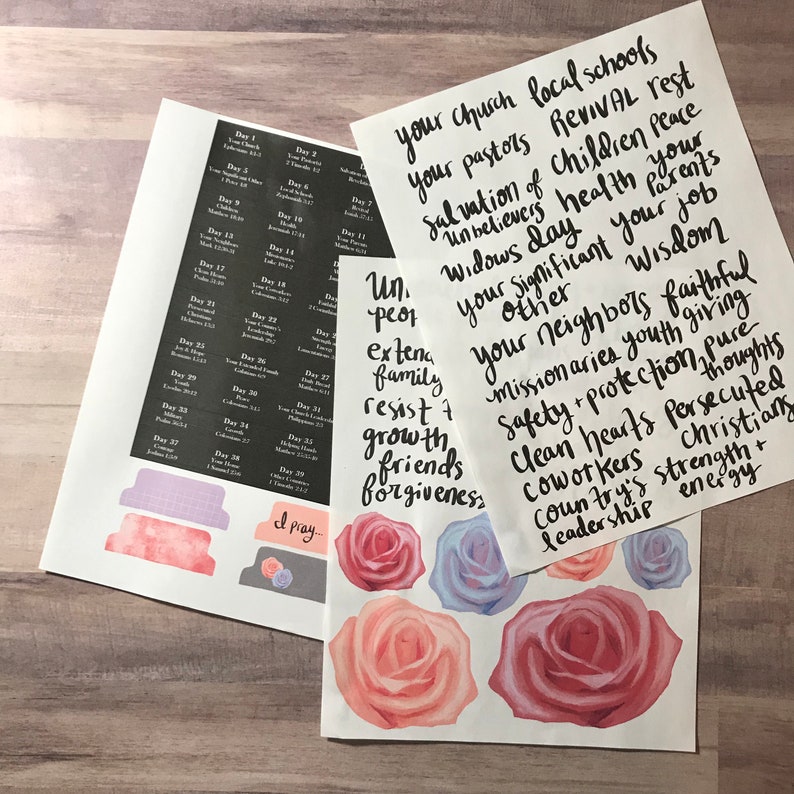 Day 1
Your Church
Ephesians 4:1-3
Day 2
Your Pastor(s)
2 Timothy 4:2
Salvation of
Day 5
Your Significant Other
1 Peter 4:8
Day 6
Local Schools
Zephaniah 3:17
Day 7
Revival
Isaiah 57:15
Day 9
Children
Matthew 18:10
Day 10
Health
Jeremiah 17:14
Day 11
Your Parents
Matthew 6:31
Day 13
Your Neighbors
Mark 12:30-31
Day 14
Missionaries
Luke 10:1-2
Day 17
Clean Hearts
Psalm 51:10
Day 18
Your Coworkers
Colossians 3:12
Faithful
2 Corinthians
Day 21
Persecuted
Christians
Hebrews 13:3
Day 22
Your Country's
Leadership
Jeremiah 29:7
Strength
Energy
Lamentations
Day 25
Joy & Hope
Romans 15:13
Day 26
Your Extended Family
Galatians 6:9
Day 27
Daily Bread
Matthew 6:11
Day 29
Youth
Exodus 20:12
Day 30
Peace
Colossians 3:15
Day 31
Your Church Leadership
Philippians 2:3
Day 33
Military
Psalm 56:3-4
Day 34
Growth
Colossians 2:7
Day 35
Helping Hands
Matthew 25:35-40
Day 37
Courage
Joshua 1:5/9
Day 38
Your Home
1 Samuel 25:6
Day 39
Other Countries
1 Timothy 2:1-2
I pray...
your church local schools
your pastors REVIVAL rest
salvation of unbelievers children peace
widows day health your parents
your significant other your job
wisdom
your neighbors faithful giving
missionaries youth
safety + protection pure thoughts
clean hearts persecuted Christians
coworkers
country's leadership strength + energy
exten
family
resist
growth
friends
forgiveness